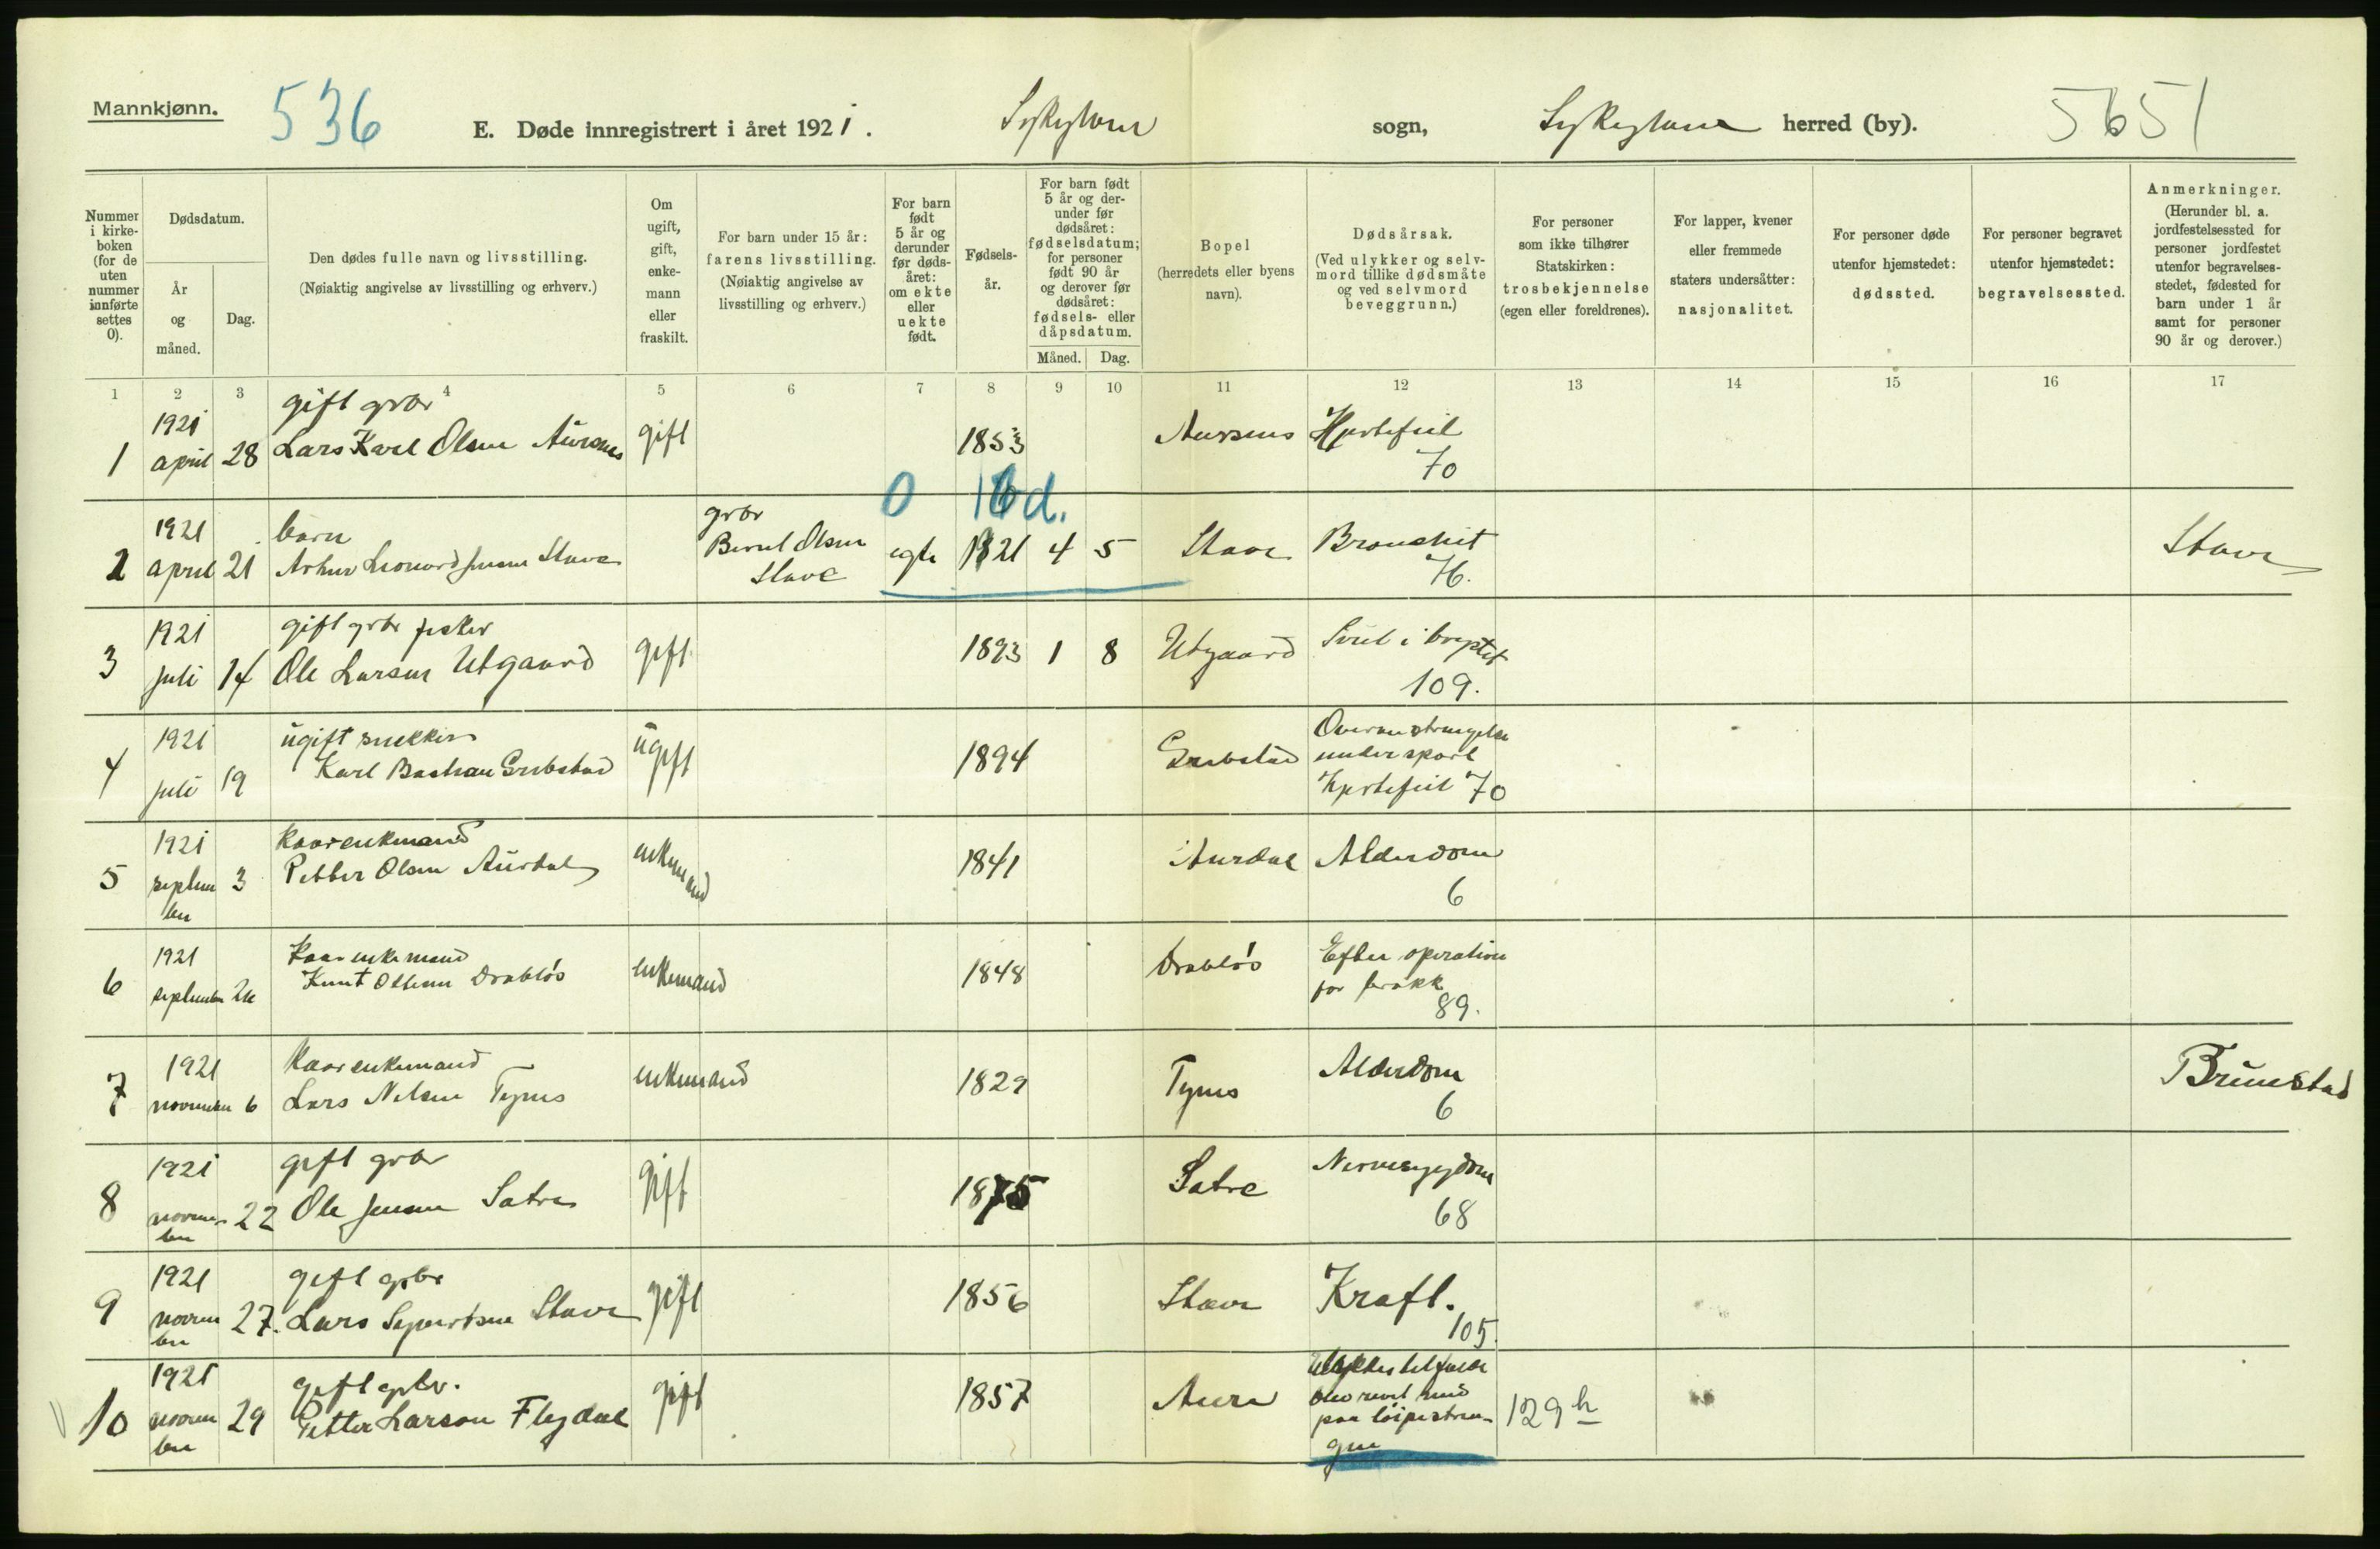 Mannkjønn.
536
E. Døde innregistrert i året 1921.
Sykylven
sogn,
Sykylven
herred (by).
5651
Nummer i kirkeboken (for de uten nummer innførte settes 0).
Dødsdatum.
År og måned.
Dag.
Den dødes fulle navn og livsstilling.
(Nøiaktig angivelse av livsstilling og erhverv.)
Om ugift, gift, enkemann eller fraskilt.
For barn under 15 år: farens livsstilling.
(Nøiaktig angivelse av livsstilling og erhverv.)
For barn født 5 år og derunder før dødsåret: om ekte eller uekte født.
Fødselsår.
For barn født 5 år og derunder før dødsåret: fødselsdatum; for personer født 90 år og derover før dødsåret: fødsels- eller dåpsdatum.
Måned.
Dag.
Bopel
(herredets eller byens navn).
Dødsårsak.
(Ved ulykker og selvmord tillike dødsmåte og ved selvmord beveggrunn.)
For personer som ikke tilhører Statskirken: trosbekjennelse (egen eller foreldrenes).
For lapper, kvener eller fremmede staters undersåtter: nasjonalitet.
For personer døde utenfor hjemstedet: dødssted.
For personer begravet utenfor hjemstedet: begravelsessted.
Anmerkninger.
(Herunder bl. a. jordfestelsessted for personer jordfestet utenfor begravelsesstedet, fødested for barn under 1 år samt for personer 90 år og derover.)
1 2 3 4 5 6 7 8 9 10 11 12 13 14 15 16 17
1 1921 april 28 gift gbr Lars Karl Olsen Aursnes gift 1853 Aursnes Hjertefeil 70
0 16 d.
2 1921 april 21 barn Arthur Leonard Jensen Stave gbr Bernt Olsen Stave egte 1921 4 5 Stave Bronchit 76. Stave
3 1921 juli 14 gift gbr fisker Ole Larsen Utgaard gift 1893 1 8 Utgaard Svul i brystet 109.
4 1921 juli 19 ugift snekker Karl Bastian Grebstad ugift 1894 Grebstad Overanstrengelse under sport Hjertefeil 70
5 1921 september 3 Kaarenkemand Petter Olsen Aurdal enkemand 1841 Aurdal Alderdom 6
6 1921 september Kaarenkemand Knut Drabløs enkemand 1848 Drabløs Efter operation for brokk 89.
7 1921 november 6 Kaarenkemand Lars Nilsen Tynes enkemand 1829 Tynes Alderdom 6 Brunstad
8 1921 november 22 gift gbr Ole Jensen Satre gift 1875 Satre Nervesygdom 68
9 1921 november 27. gift gbr Lars Stave gift 1856 Stave Kræft. 105.
10 1921 november 29 gift gbr. Petter Larsen Flydal gift 1857 Aure Ulykkestilfælde blev revet ned paa løipestrengen 129 h